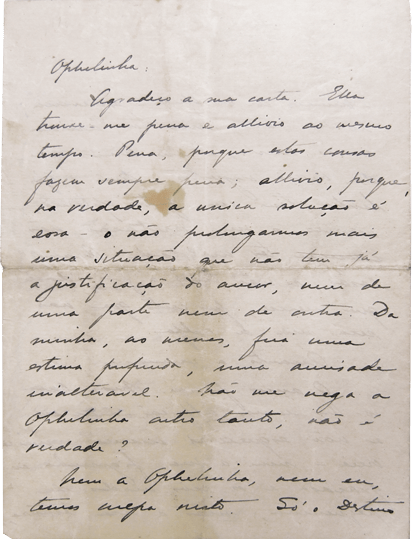 Ophelinha:
Agradeço a sua carta. Ella
trouxe-me pena e allivio ao mesmo
tempo. Pena, porque estas cousas
fazem sempre pena; allivio, porque,
na verdade, a unica solução é
essa – o não prolongarmos mais
uma situação que não tem já
a justificação do amor, nem de
uma parte nem de outra. Da
minha, ao menos, fica uma
estima profunda, uma amisade
inalteravel. Não me nega a
Ophelinha outro tanto, não é
verdade?
Nem a Ophelinha, nem eu,
temos culpa nisto. Só o Destino